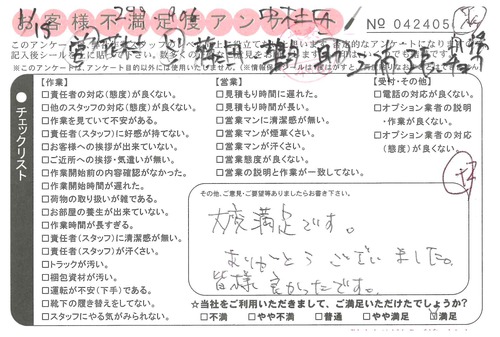 お客様不満足度アンケート
No 042405
チェックリスト
【作業】
□責任者の対応(態度)が良くない。
□他のスタッフの対応(態度)が良くない。
□作業を見ていて不安がある。
□責任者(スタッフ)に好感が持てない。
□お客様への挨拶が出来ていない。
□ご近所への挨拶・気遣いが無い。
□作業開始前の内容確認がなかった。
□作業開始時間が遅れた。
□荷物の取り扱いが雑である。
□お部屋の養生が出来ていない。
□作業時間が長すぎる。
□責任者(スタッフ)に清潔感が無い。
□責任者(スタッフ)が汗くさい。
□トラックが汚い。
□梱包資材が汚い。
□運転が不安(下手)である。
□靴下の履き替えをしてない。
□スタッフにやる気がみられない。
【営業】
□見積もり時間に遅れた。
□見積もり時間が長い。
□営業マンに清潔感が無い。
□営業マンが煙草くさい。
□営業マンが汗くさい。
□営業態度が良くない。
□営業の説明と作業が一致してない。
【受付・その他】
□電話の対応が良くない。
□オプション業者の説明
・作業が良くない。
□オプション業者の対応
(態度)が良くない。
その他、ご意見・ご要望等ありましたらお書き下さい。
大変満足です。
ありがとうございました。
皆様良かったです。
☆当社をご利用いただきまして、ご満足いただけたでしょうか?
□不満 □やや不満 □普通 □やや満足 □満足